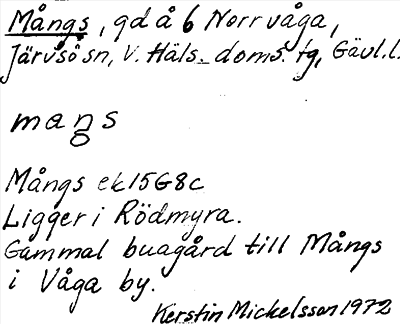 Mångs, gd å 6 Norrvåga,
Järvsö sn, V. Häls. doms. tg, Gävl.l.
maŋs
Mångs ek 15G8c
Ligger i Rödmyra.
Gammal buagård till Mångs
i Våga by.
Kerstin Mickelsson 1972